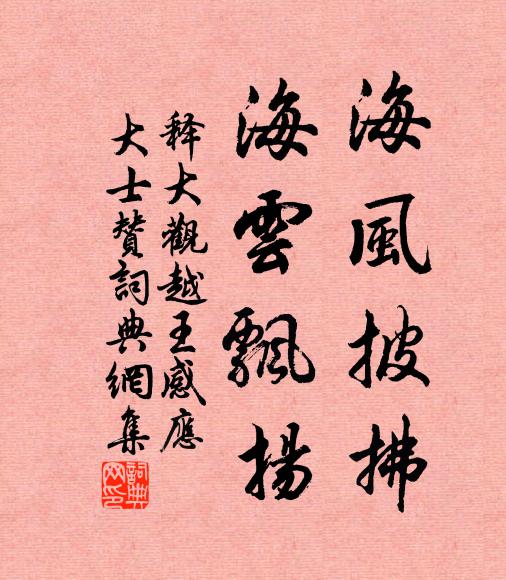 海風披拂
海雲飄揚
释大觀越王感應
大士賛詞典網集
詞典网印